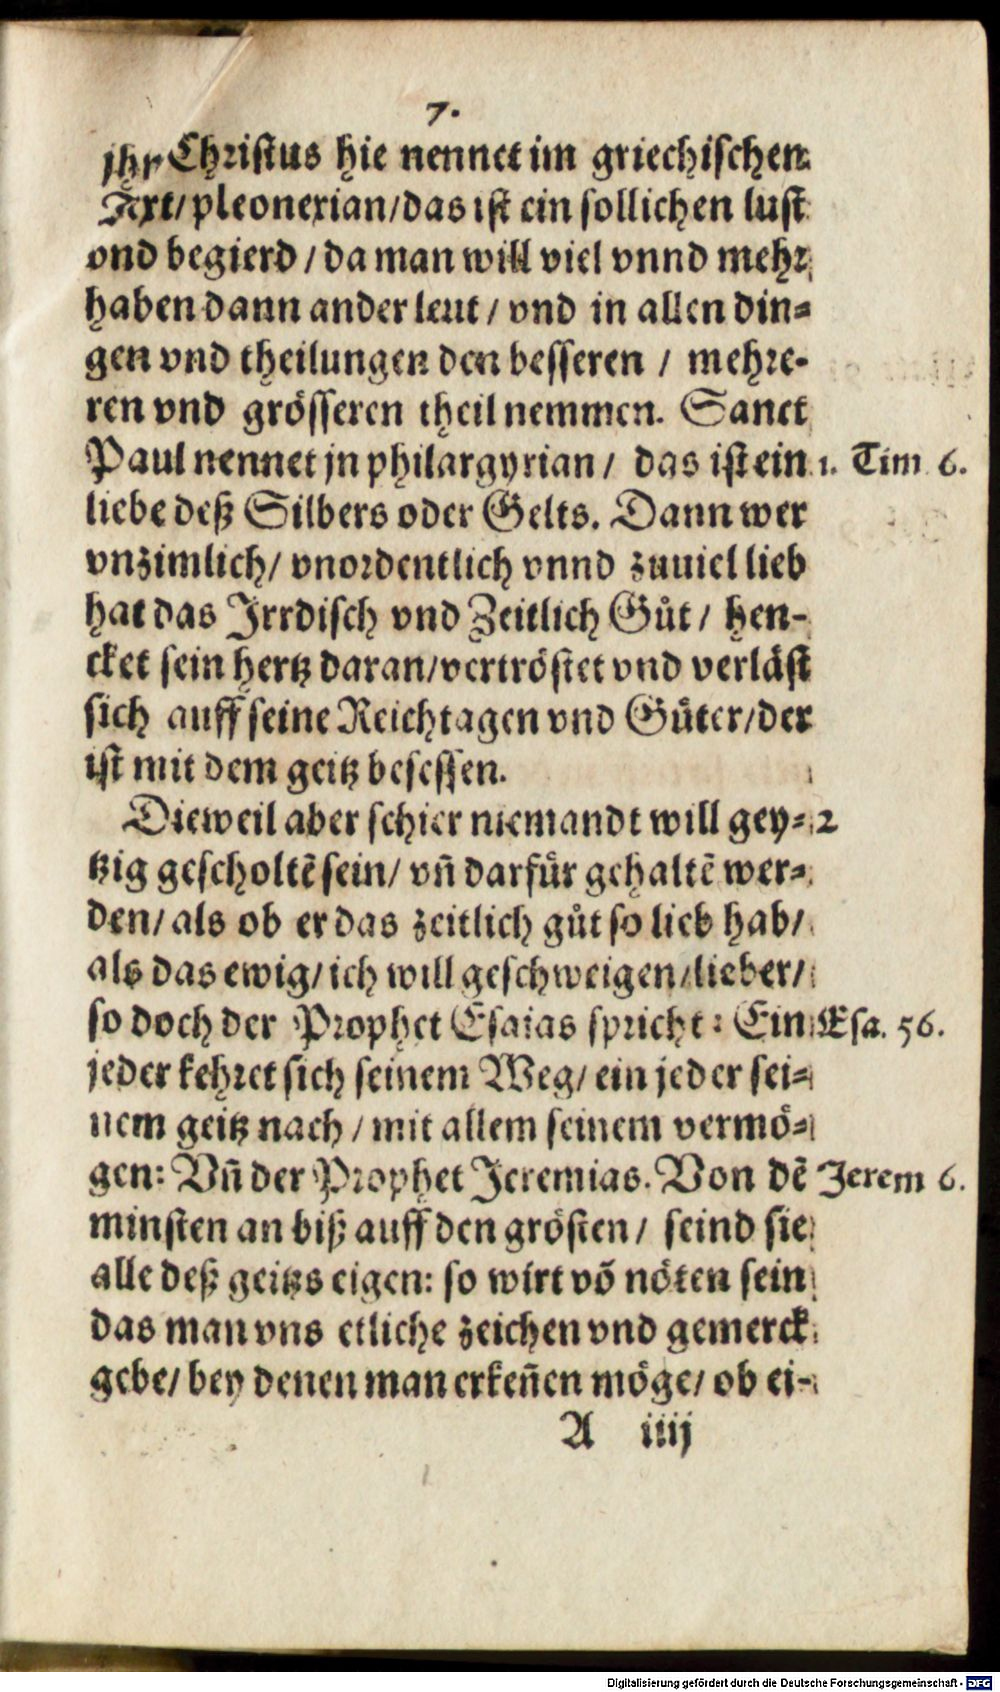 7.
jhr Christus hie nennet im griechischen
Text/ pleonexian/ das ist ein sollichen lust
vnd begierd / da man will viel vnnd mehr
haben dann ander leut / vnd in allen din-
gen vnd theilungen den besseren / mehre-
ren vnd grösseren theil nemmen. Sanct
Paul nennet jn philargyrian / das ist ein 1. Tim 6.
liebe deß Silbers oder Gelts. Dann wer
vnzimlich/ vnordentlich vnnd zuuiel lieb
hat das Irrdisch vnd Zeitlich Gůt / hen-
cket sein hertz daran/ vertröstet vnd verläst
sich auff seine Reichtagen vnd Gůter/ der
ist mit dem geitz besessen.
Dieweil aber schier niemandt will gey- 2
tzig gescholtē sein/ vñ darfür gehaltē wer-
den/ als ob er das zeitlich gůt so lieb hab/
als das ewig/ ich will geschweigen/ lieber/
so doch der Prophet Esaias spricht: Ein Esa. 56.
jeder kehret sich seinem Weg/ ein jeder sei-
nem geitz nach / mit allem seinem vermö-
gen: Vñ der Prophet Jeremias. Von dē Jerem 6.
minsten an biß auff den grösten / seind sie
alle deß geitzs eigen: so wirt vō nöten sein
das man vns etliche zeichen vnd gemerck
gebe/ bey denen man erkeñen möge/ ob ei-
A iiij
Digitalisierung gefördert durch die Deutsche Forschungsgemeinschaft - DFG